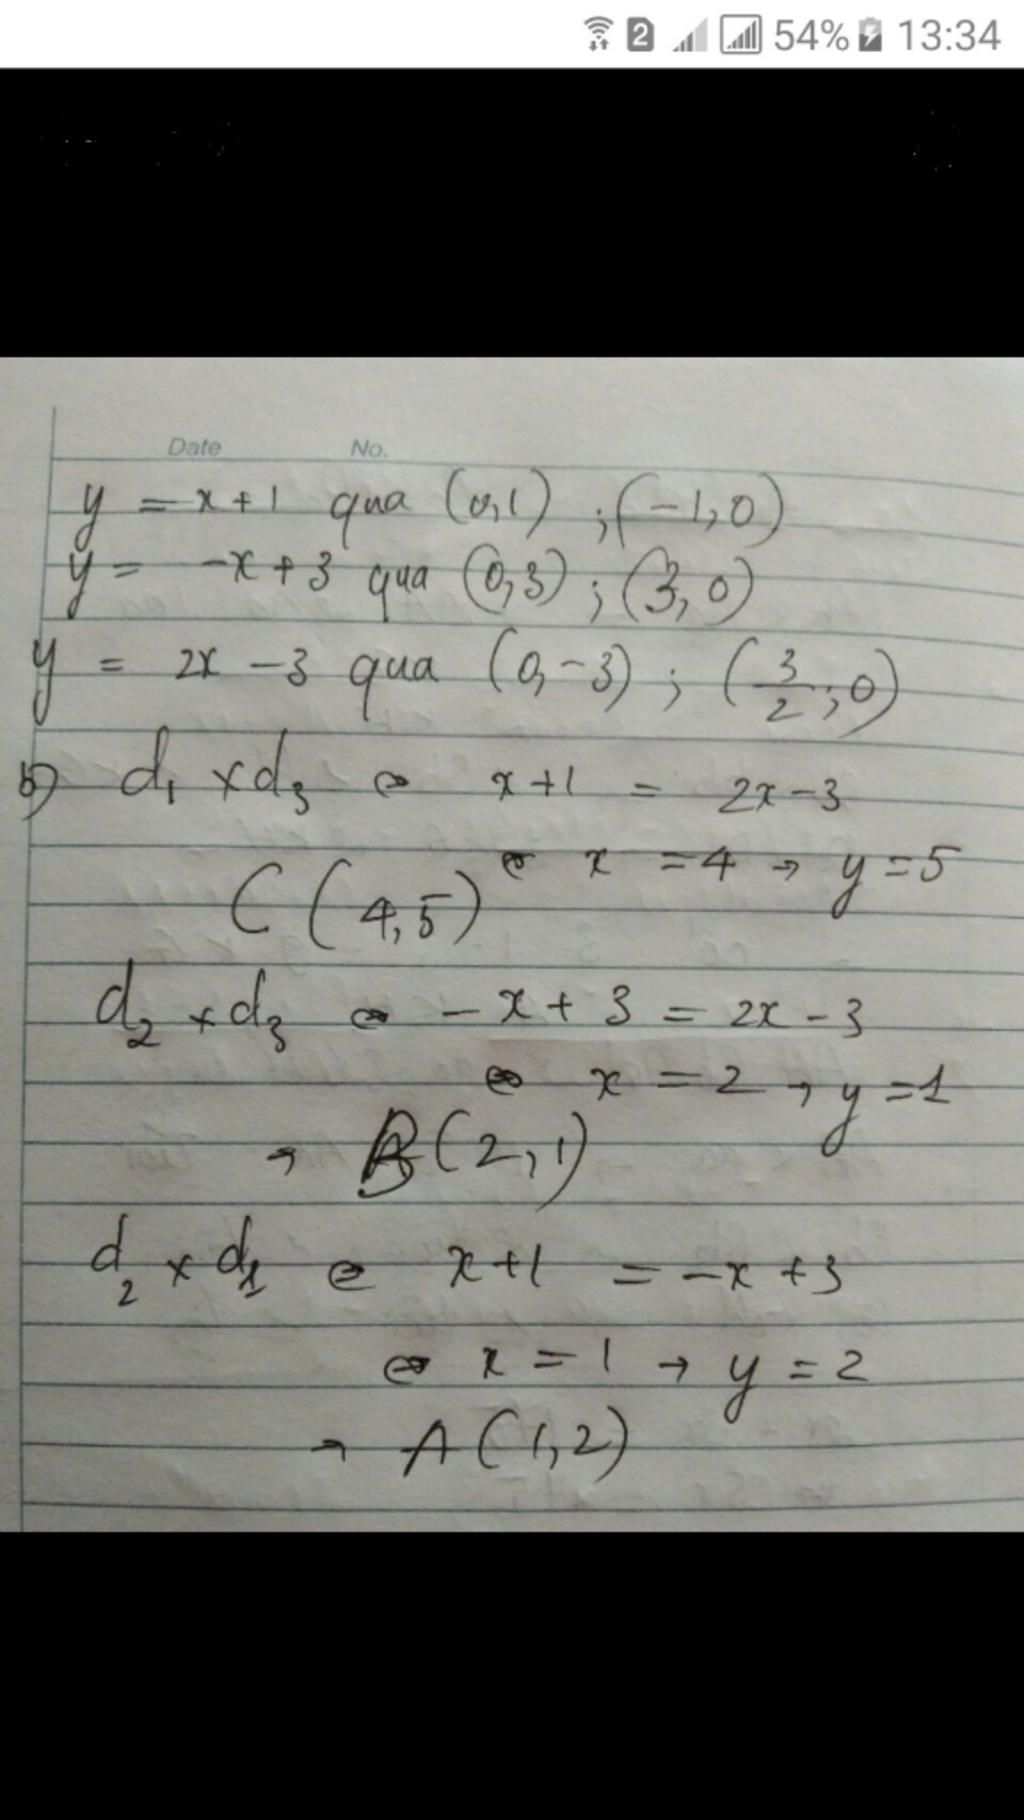 2 54% 13:34
Date No.
y = x + 1 qua (0,1) ; (-1,0)
y = -x + 3 qua (0,3) ; (3,0)
y = 2x - 3 qua (0,-3) ; (3/2 ; 0)
b) d₁ × d₃ ⇔ x+1 = 2x-3
⇔ x = 4 → y = 5
C (4,5)
d₂ × d₃ ⇔ -x + 3 = 2x - 3
⇔ x = 2 → y = 1
→ B(2,1)
d₂ × d₁ ⇔ x+1 = -x +3
⇔ x = 1 → y = 2
→ A(1,2)